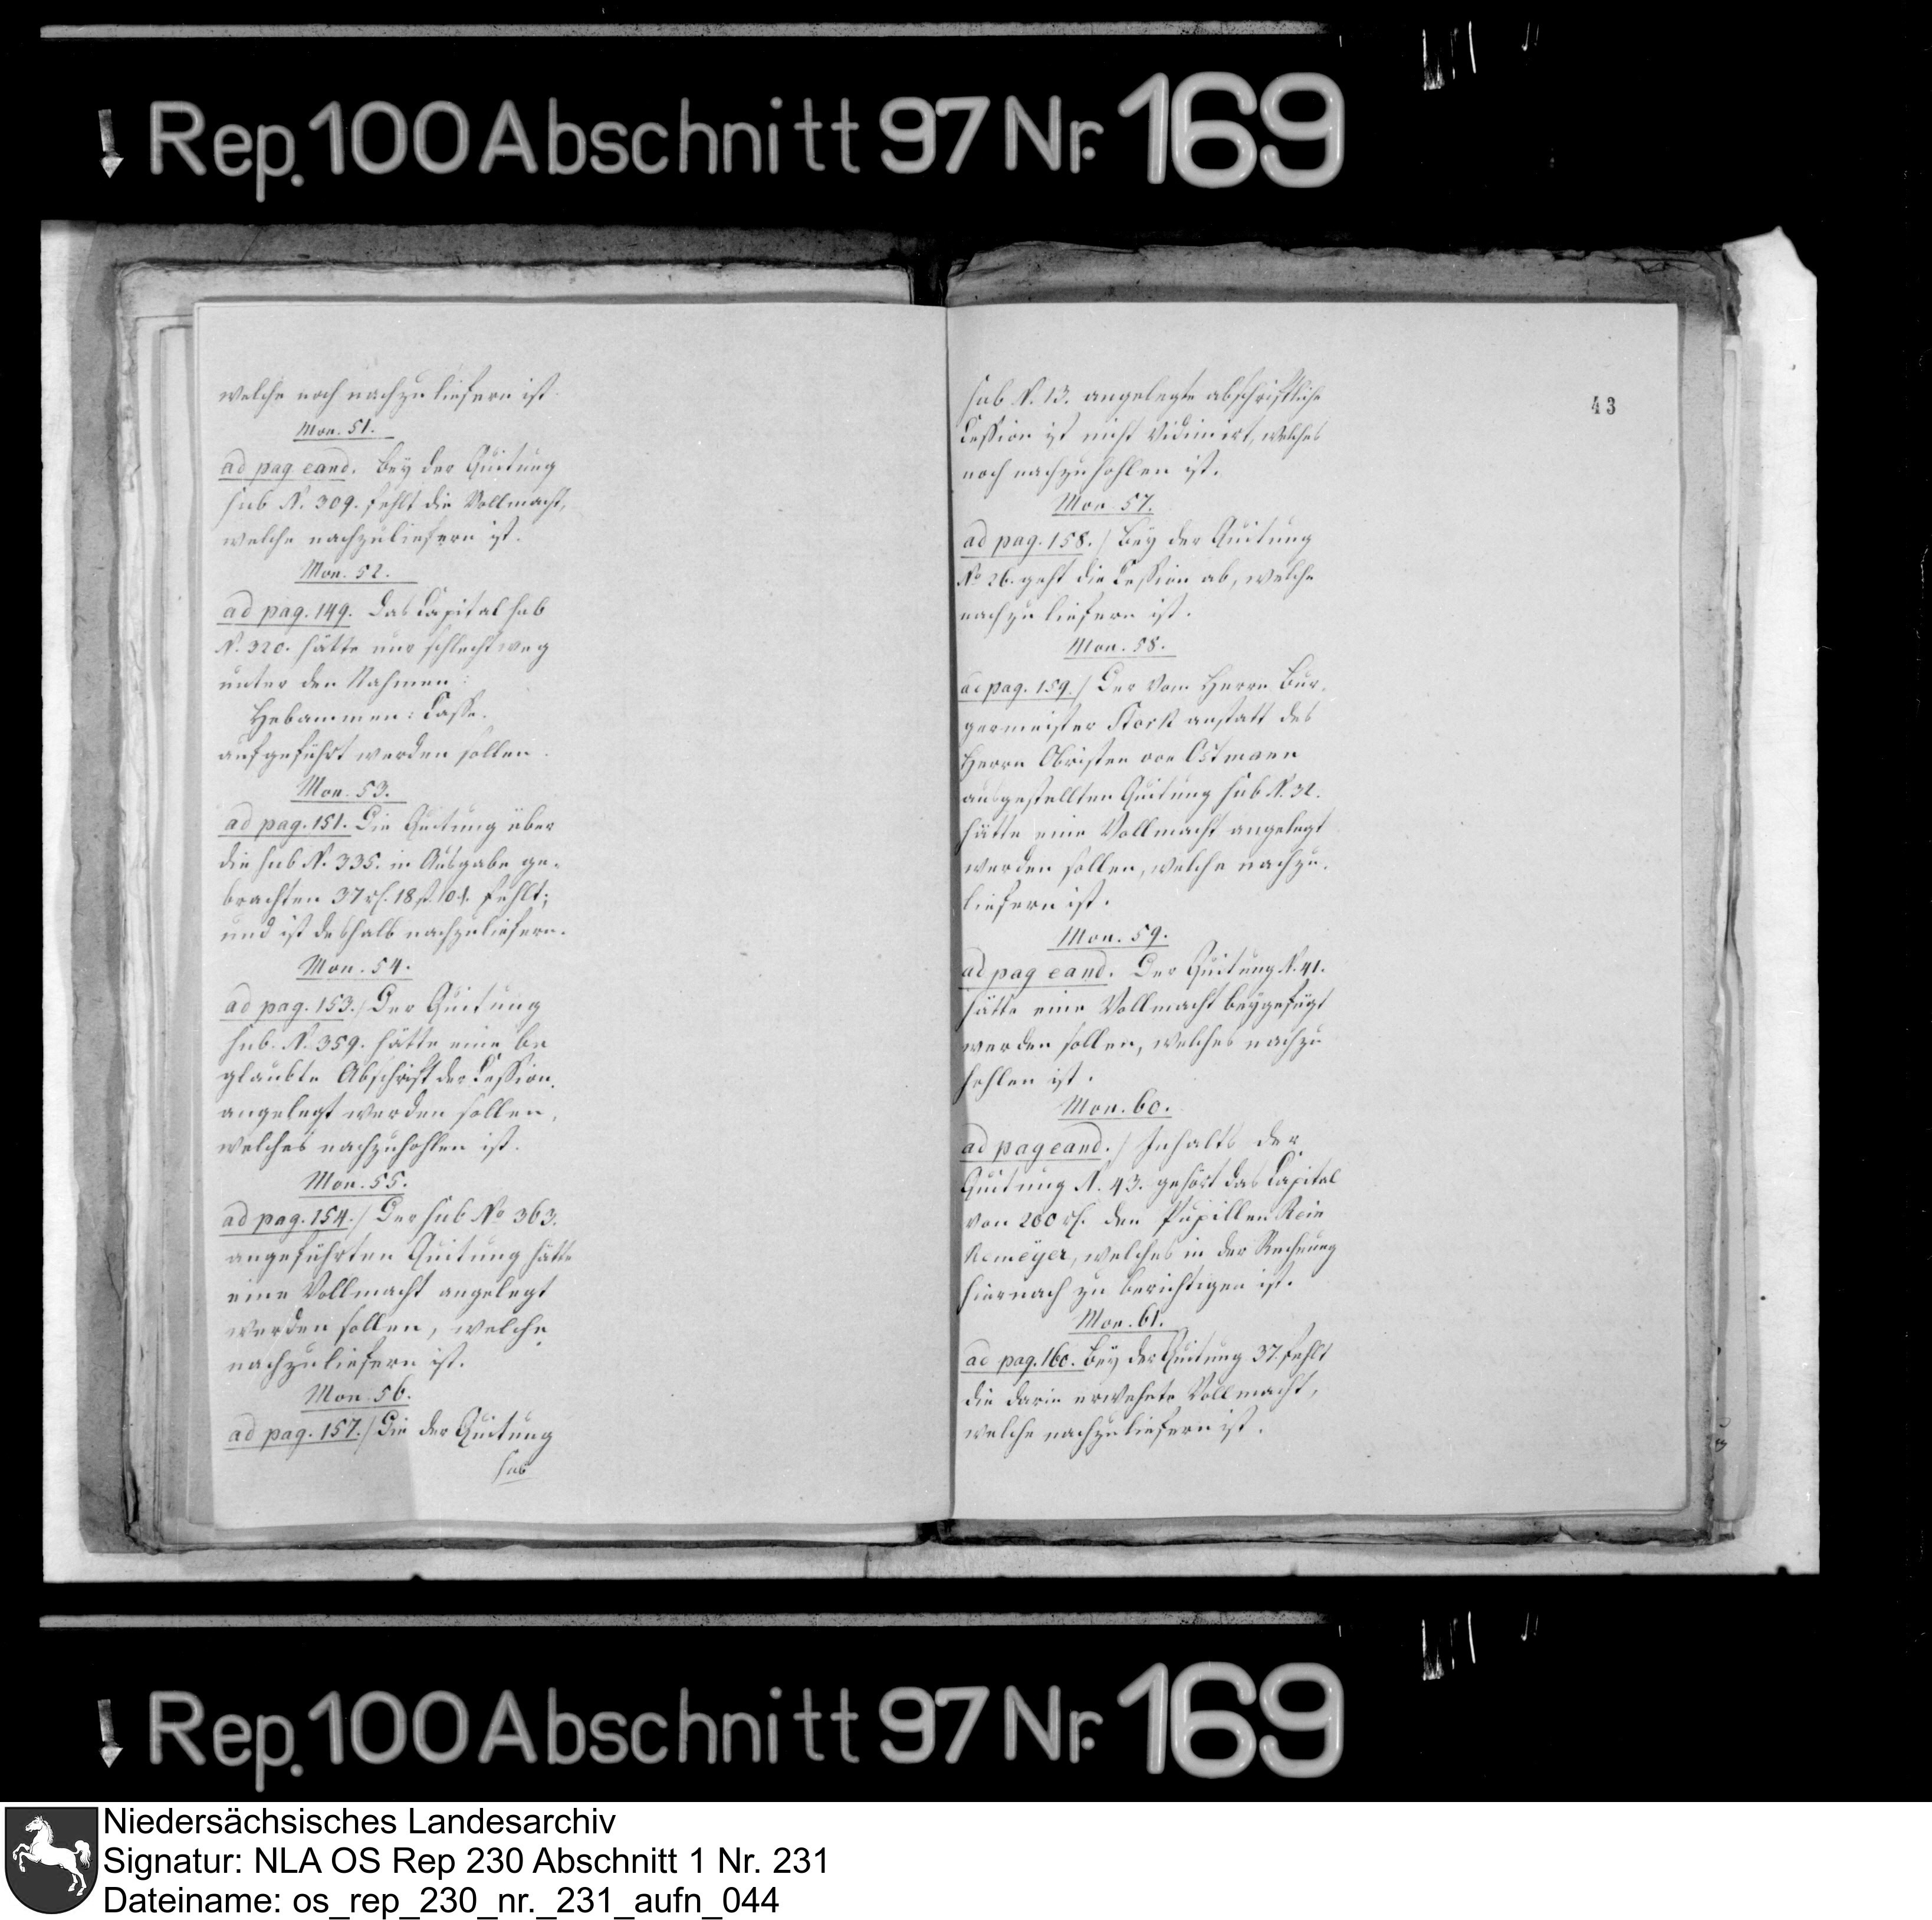 Rep. 100 Abschnitt 97 Nr. 169
welche noch nachzuliefern ist.
Mon. 51.
ad pag. eand. Bey der Quitung
sub N. 309. fehlt die Vollmacht,
welche nachzuliefern ist.
Mon. 52.
ad pag. 149. Das Capital sub
N. 320. hätte nur schlechtweg
unter den Nahmen:
Hebammen: Casse.
aufgeführt werden sollen.
Mon. 53.
ad pag. 151. Die Quitung über
die sub N. 335. in Ausgabe ge-
brachten 37 rh. 18 ß. 10 d. fehlt;
und ist deshalb nachzuliefern.
Mon. 54.
ad pag. 153./ Der Quitung
sub. N. 359. hätte eine be
glaubte Abschrift der Cession
angelegt werden sollen,
welches nachzuhohlen ist.
Mon. 55.
ad pag. 154./ Der sub No 363.
angeführten Quitung hätte
eine Vollmacht angelegt
werden sollen, welche
nachzuliefern ist.
Mon. 56.
ad pag. 157./ Die der Quitung
sub
43
sub N. 13. angelegte abschriftliche
Cession ist nicht vidimirt, welches
noch nachzuhohlen ist.
Mon. 57.
ad pag. 158./ Bey der Quitung
No 26. geht die Cession ab, welche
nachzuliefern ist.
Mon. 58.
ad pag. 159./ Der vom Herrn Bür-
germeister Stork anstatt des
Herrn Obristen von Ostmann
ausgestellten Quitung sub N. 32.
hätte eine Vollmacht angelegt
werden sollen, welche nachzu-
liefern ist.
Mon. 59.
ad pag eand. Der Quitung N. 41.
hätte eine Vollmacht beygefügt
werden sollen, welches nachzu
hohlen ist.
Mon. 60.
ad pag eand./ Inhalts der
Quitung N. 43. gehört das Capital
von 200 rh. den Pupillen Rein
kemeÿer, welches in der Rechnung
hiernach zu berichtigen ist.
Mon. 61.
ad pag. 160. Bey der Quitung 37. fehlt
die darin erwehnte Vollmacht,
welche nachzuliefern ist.
Rep. 100 Abschnitt 97 Nr. 169
Niedersächsisches Landesarchiv
Signatur: NLA OS Rep 230 Abschnitt 1 Nr. 231
Dateiname: os_rep_230_nr._231_aufn_044